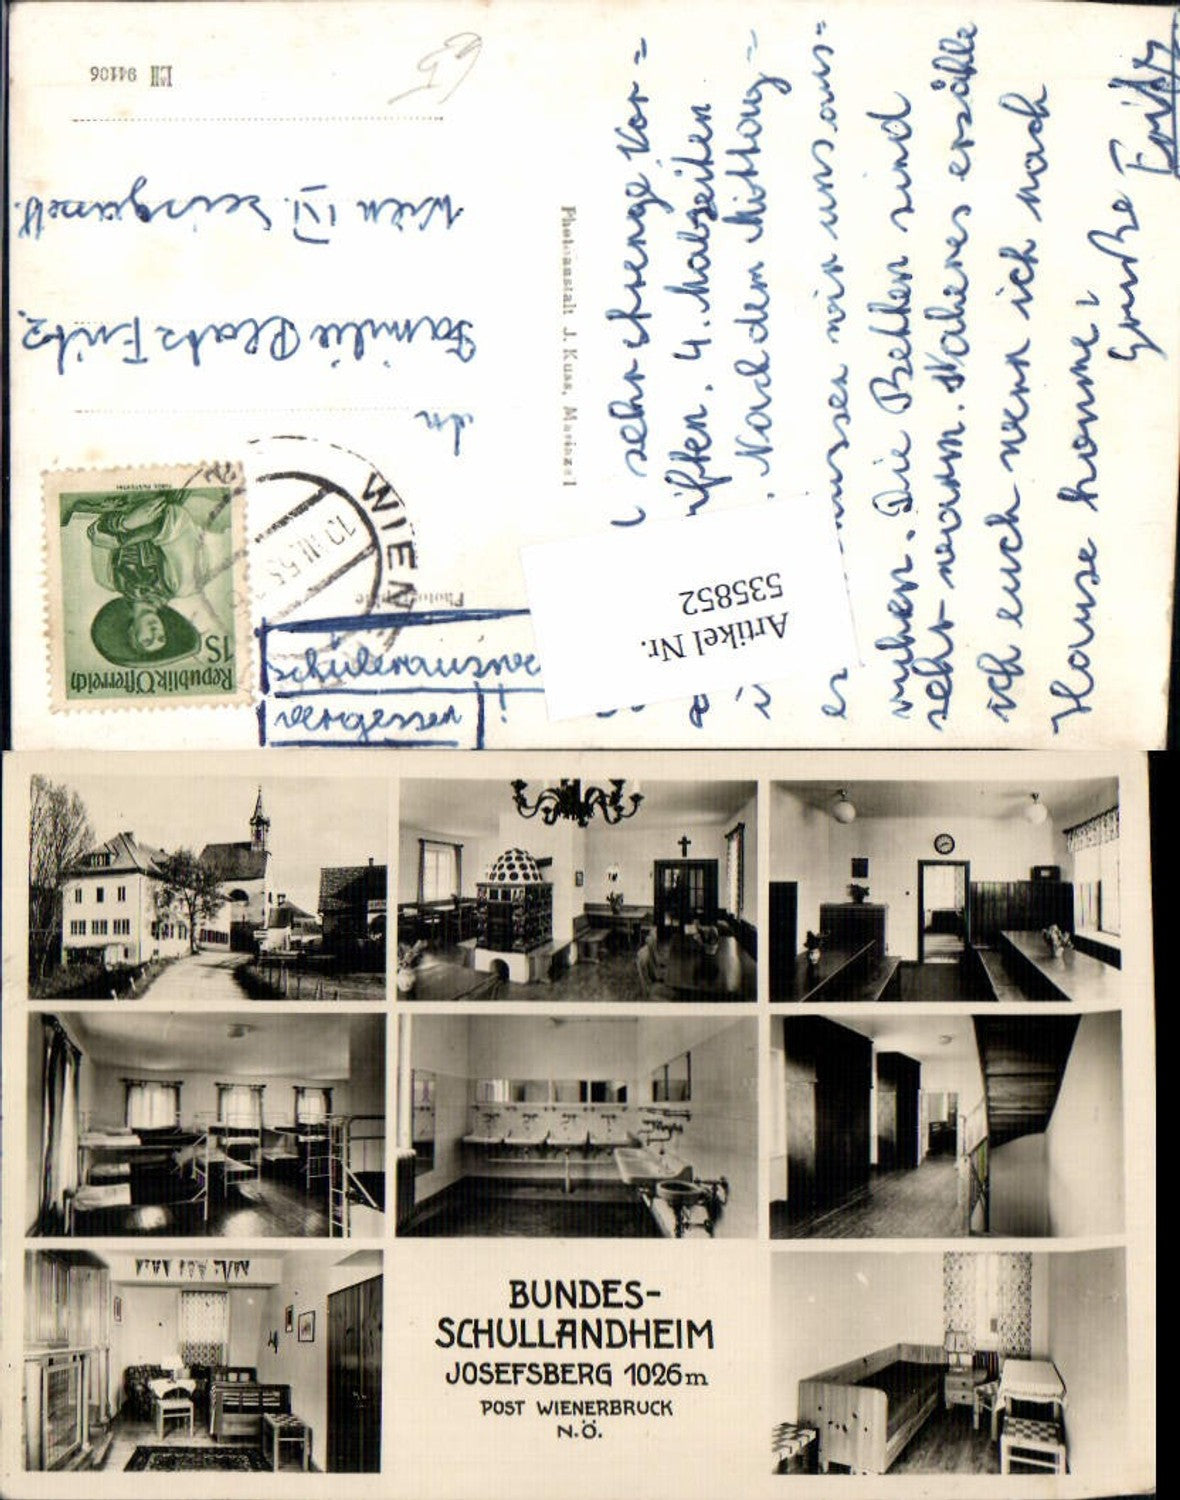 LH 94106
An
Familie Platz Fritz
Wien IV.
Photoanstalt J. Kuss, Mariazell
Photographie
Republik Österreich
1S
WIEN
vergessen!
Artikel Nr.
535852
sehr strenge Vor=
4. Malzeiten
Nach dem Mittag=
müssen wir uns aus=
ruhen. Die Betten sind
sehr warm. Näheres erzähle
ich euch wenn ich nach
Hause komme!
Grüße Fritz
BUNDES-
SCHULLANDHEIM
JOSEFSBERG 1026m
POST WIENERBRUCK
N.Ö.